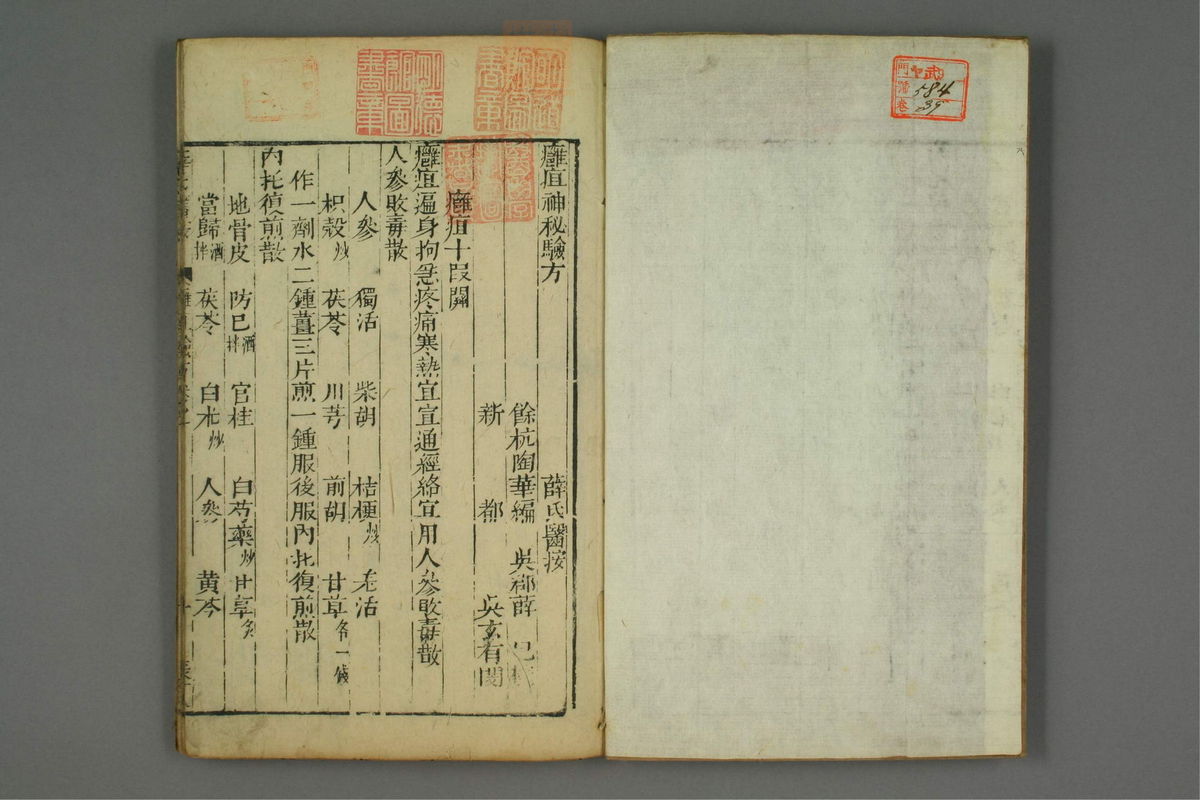 癰疽神秘驗方 薛氏醫按
餘杭陶華編 吳郡薛 己
新 都 吳玄有閱
癰疽十叚關
癰疽遍身拘急疼痛寒熱宜宜通經絡宜用人參敗毒散
人參敗毒散
人參 獨活 柴胡 桔梗炒 羌活
枳殼炒 茯苓 川芎 前胡 甘草各一錢
作一劑水二鍾薑三片煎一鍾服後服內托復煎散
內托復煎散
地骨皮 防已酒拌 官桂 白芍藥炒 甘草炙
當歸酒拌 茯苓 白朮炒 人參 黃芩
武
門 號 卷
584
39